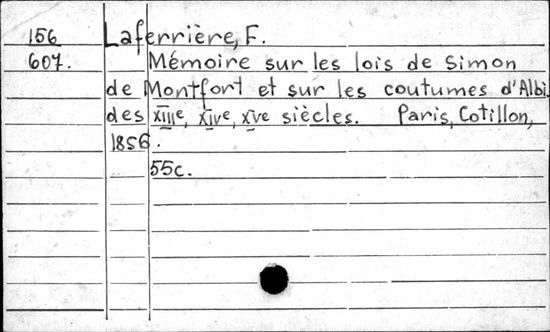 156 Laferrière, F.
607. Mémoire sur les lois de Simon
de Montfort et sur les coutumes d'Albi
des XIIIe, XIVe, XVe siècles. Paris, Cotillon,
1856.
55c.